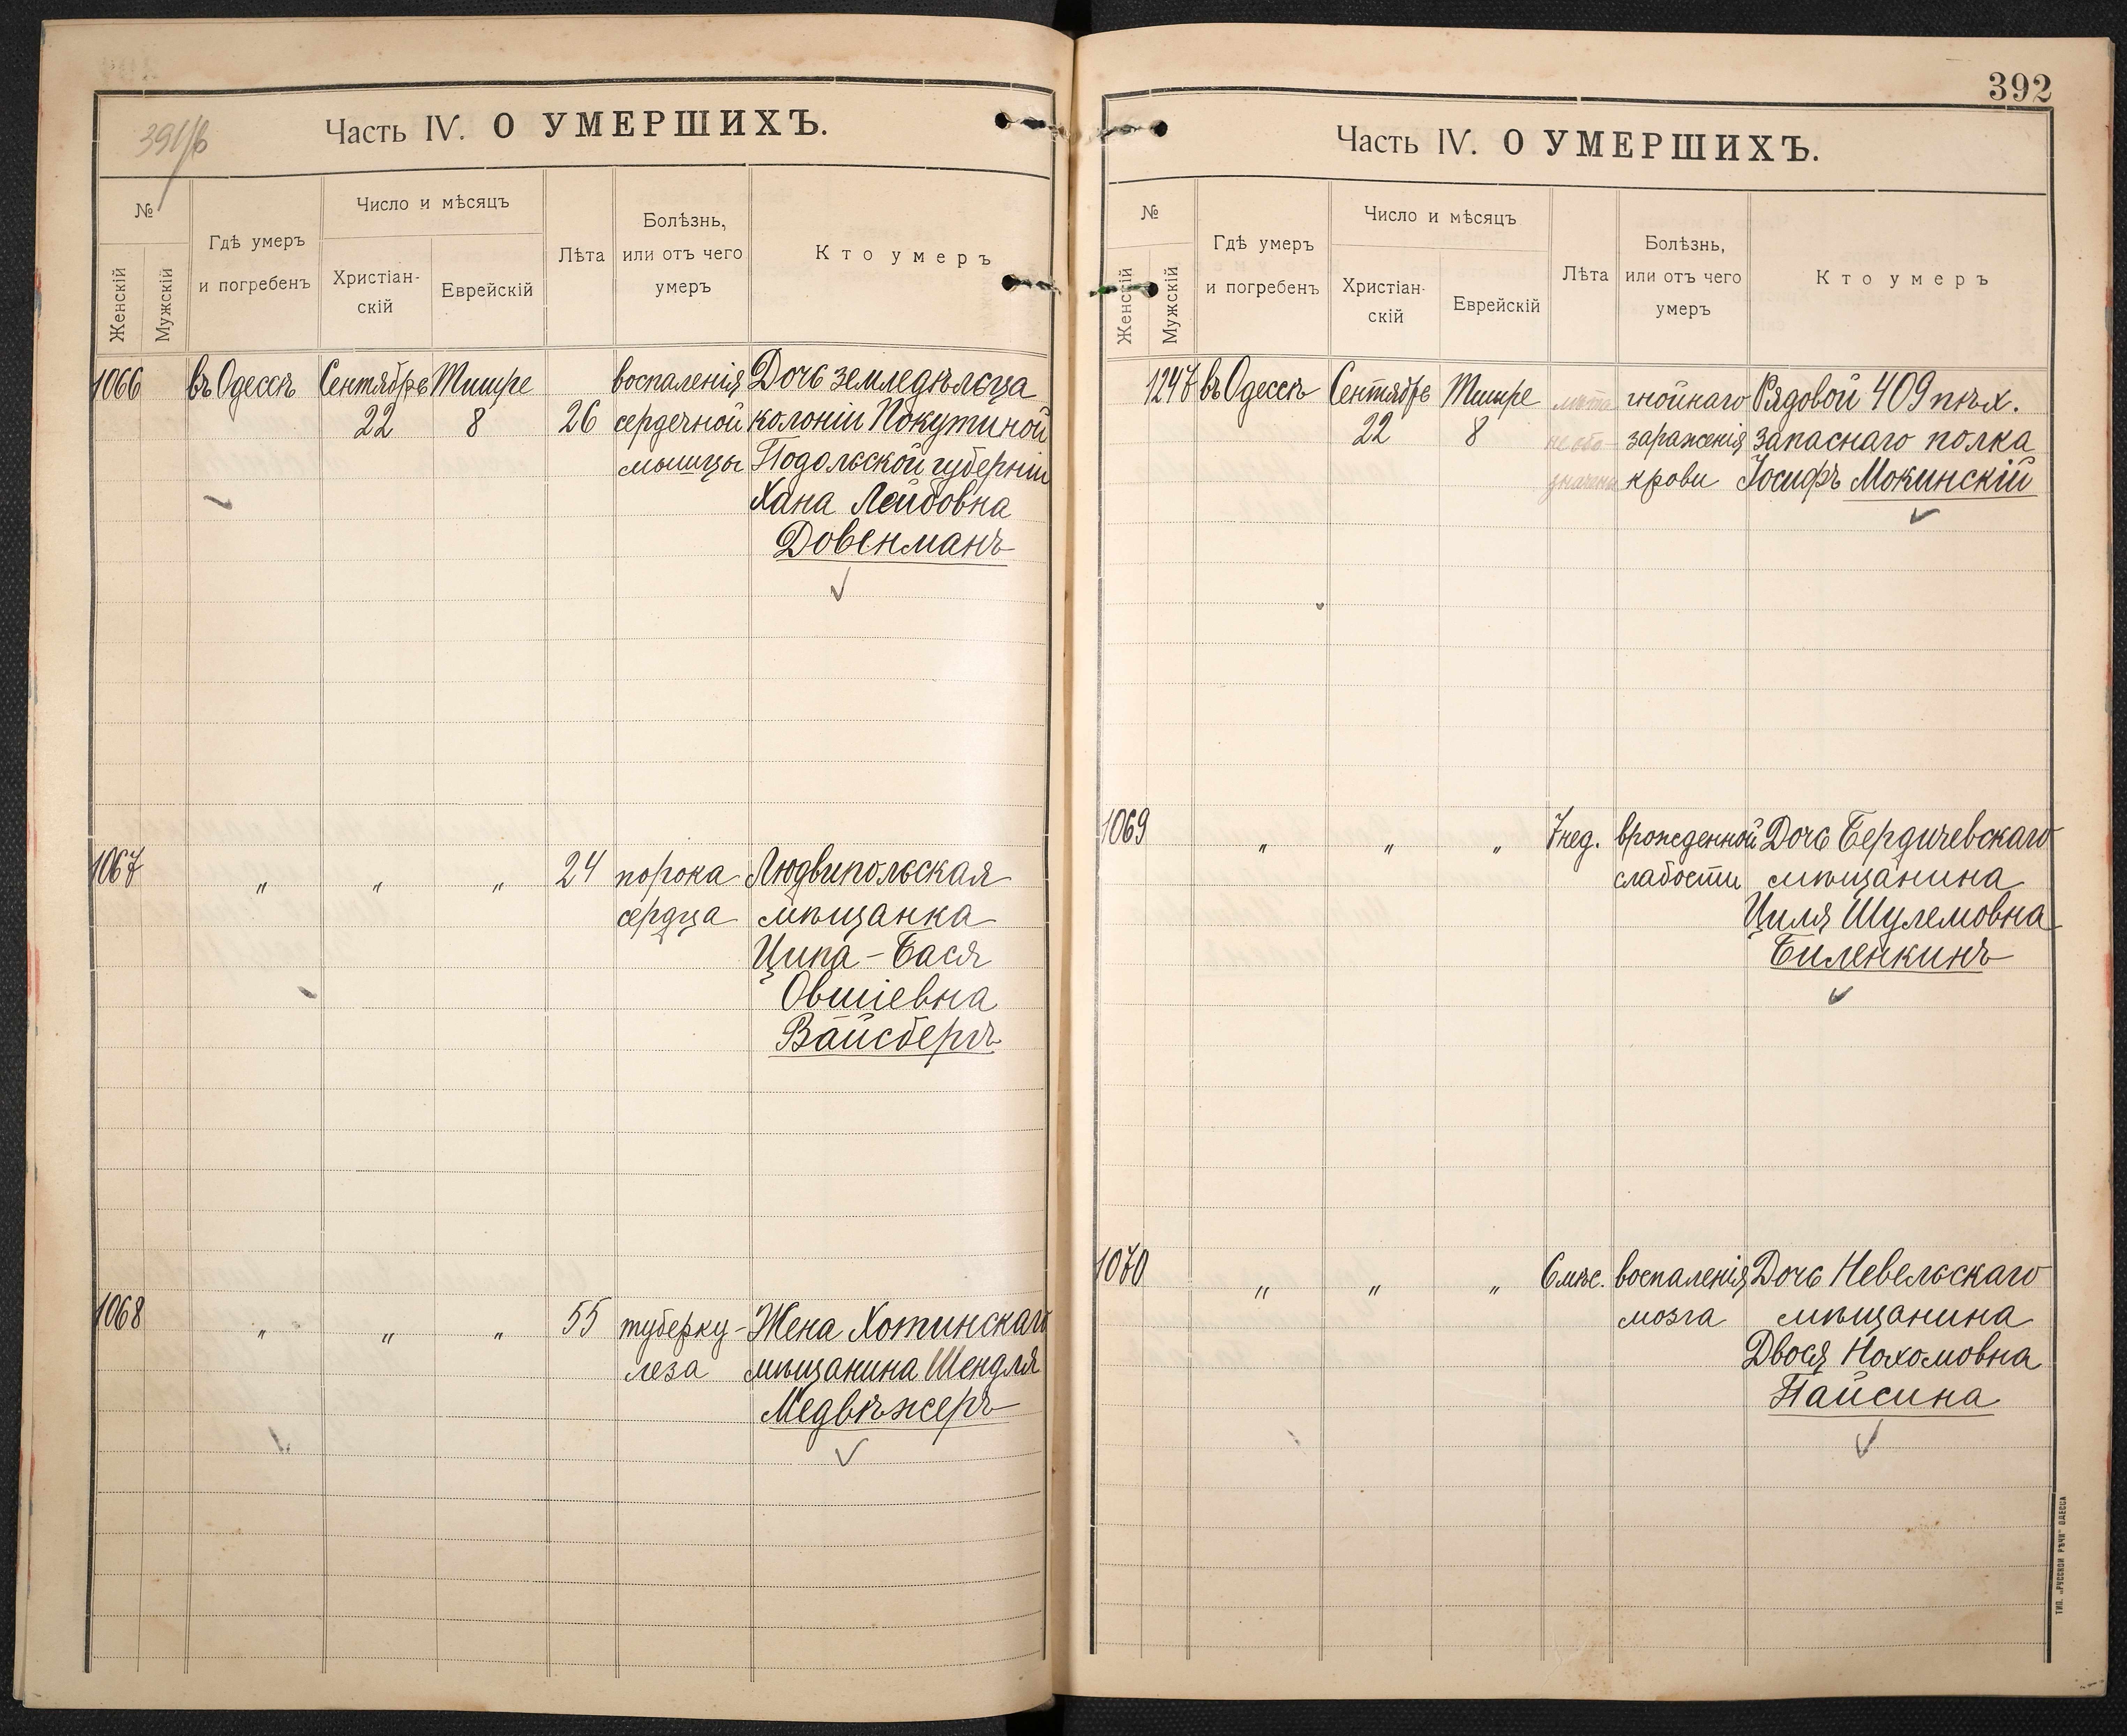 391/в
Часть IV. О УМЕРШИХЪ.
№
Женскій
Мужскій
Гдѣ умеръ
и погребенъ
Число и мѣсяцъ
Христіан-
скій
Еврейскій
Лѣта
Болѣзнь,
или отъ чего
умеръ
Кто умеръ
1066 въ Одессѣ Сентябрь Тишре воспаленія Дочь земледѣльца
22 8 26 сердечной колоніи Покутиной
мышцы Подольской губерніи
Хана Лейбовна
Довенманъ
1067 " " " 24 порока Людвипольская
сердца мѣщанка
Ципа-Бася
Овшіевна
Вайсбергъ
1068 " " " 55 туберку- Жена Хотинскаго
леза мѣщанина Шендля
Медвѣжеръ
392
Часть IV. О УМЕРШИХЪ.
№
Женскій
Мужскій
Гдѣ умеръ
и погребенъ
Число и мѣсяцъ
Христіан-
скій
Еврейскій
Лѣта
Болѣзнь,
или отъ чего
умеръ
Кто умеръ
1247 въ Одессѣ Сентябрь Тишре лѣта гнойнаго Рядовой 409 пѣх.
22 8 не обо- зараженія запаснаго полка
значены крови Іосифъ Мокинскій
1069 " " " 7 нед. врожденной Дочь Бердичевскаго
слабости мѣщанина
Циля Шулемовна
Биленкинъ
1070 " " " 6 мѣс. воспаленія Дочь Невельскаго
мозга мѣщанина
Двося Нохомовна
Пайсина
ТИП. „РУССКОЙ РѢЧИ" ОДЕССА